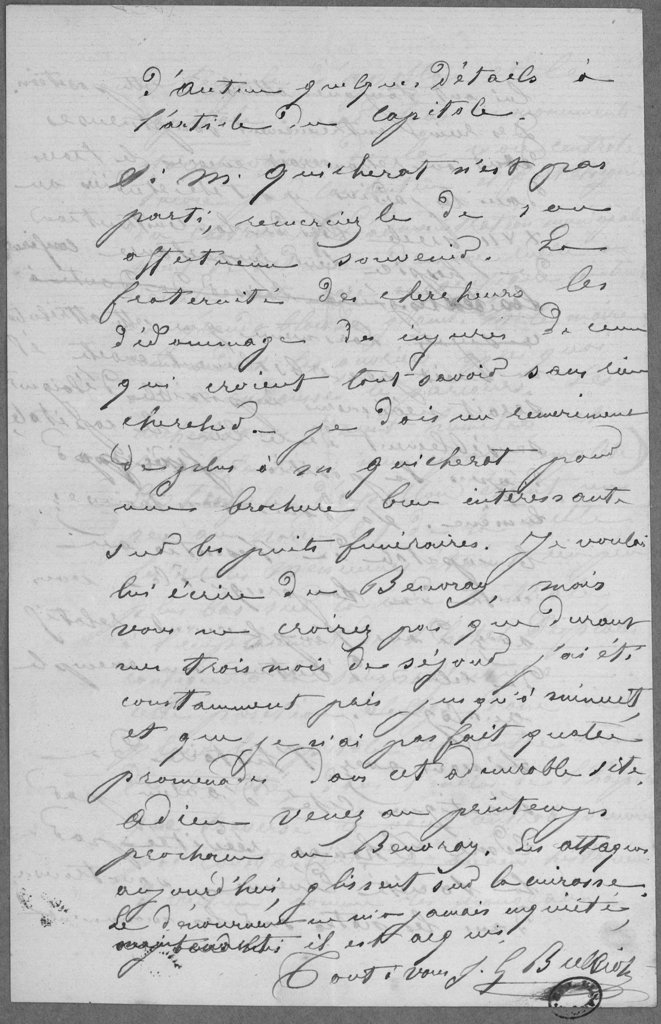 d'Autun quelques détails à
l'article du Capitole.
Si M. Quicherat n'est pas
parti, remerciez le de son
affectueux souvenir. La
fraternité des chercheurs les
dédommage des injures de ceux
qui croient tout savoir sans rien
chercher. Je dois un remerciment
de plus à M Quicherat pour
une brochure bien interessante
sur les puits funéraires. Je voulai
lui écrire du Beuvray, mais
vous ne croirez pas que durant
mes trois mois de séjour j'ai été
constamment pris jusqu'à minuit,
et que je n'ai pas fait quatre
promenades dans cet admirable site.
Adieu venez au printemps
prochain au Beuvray. Les attaques
aujourd'hui glissent sur la cuirasse.
Le dénouement ne m'a jamais inquiété,
il est acquis
Tout à vous J. G Bulliot